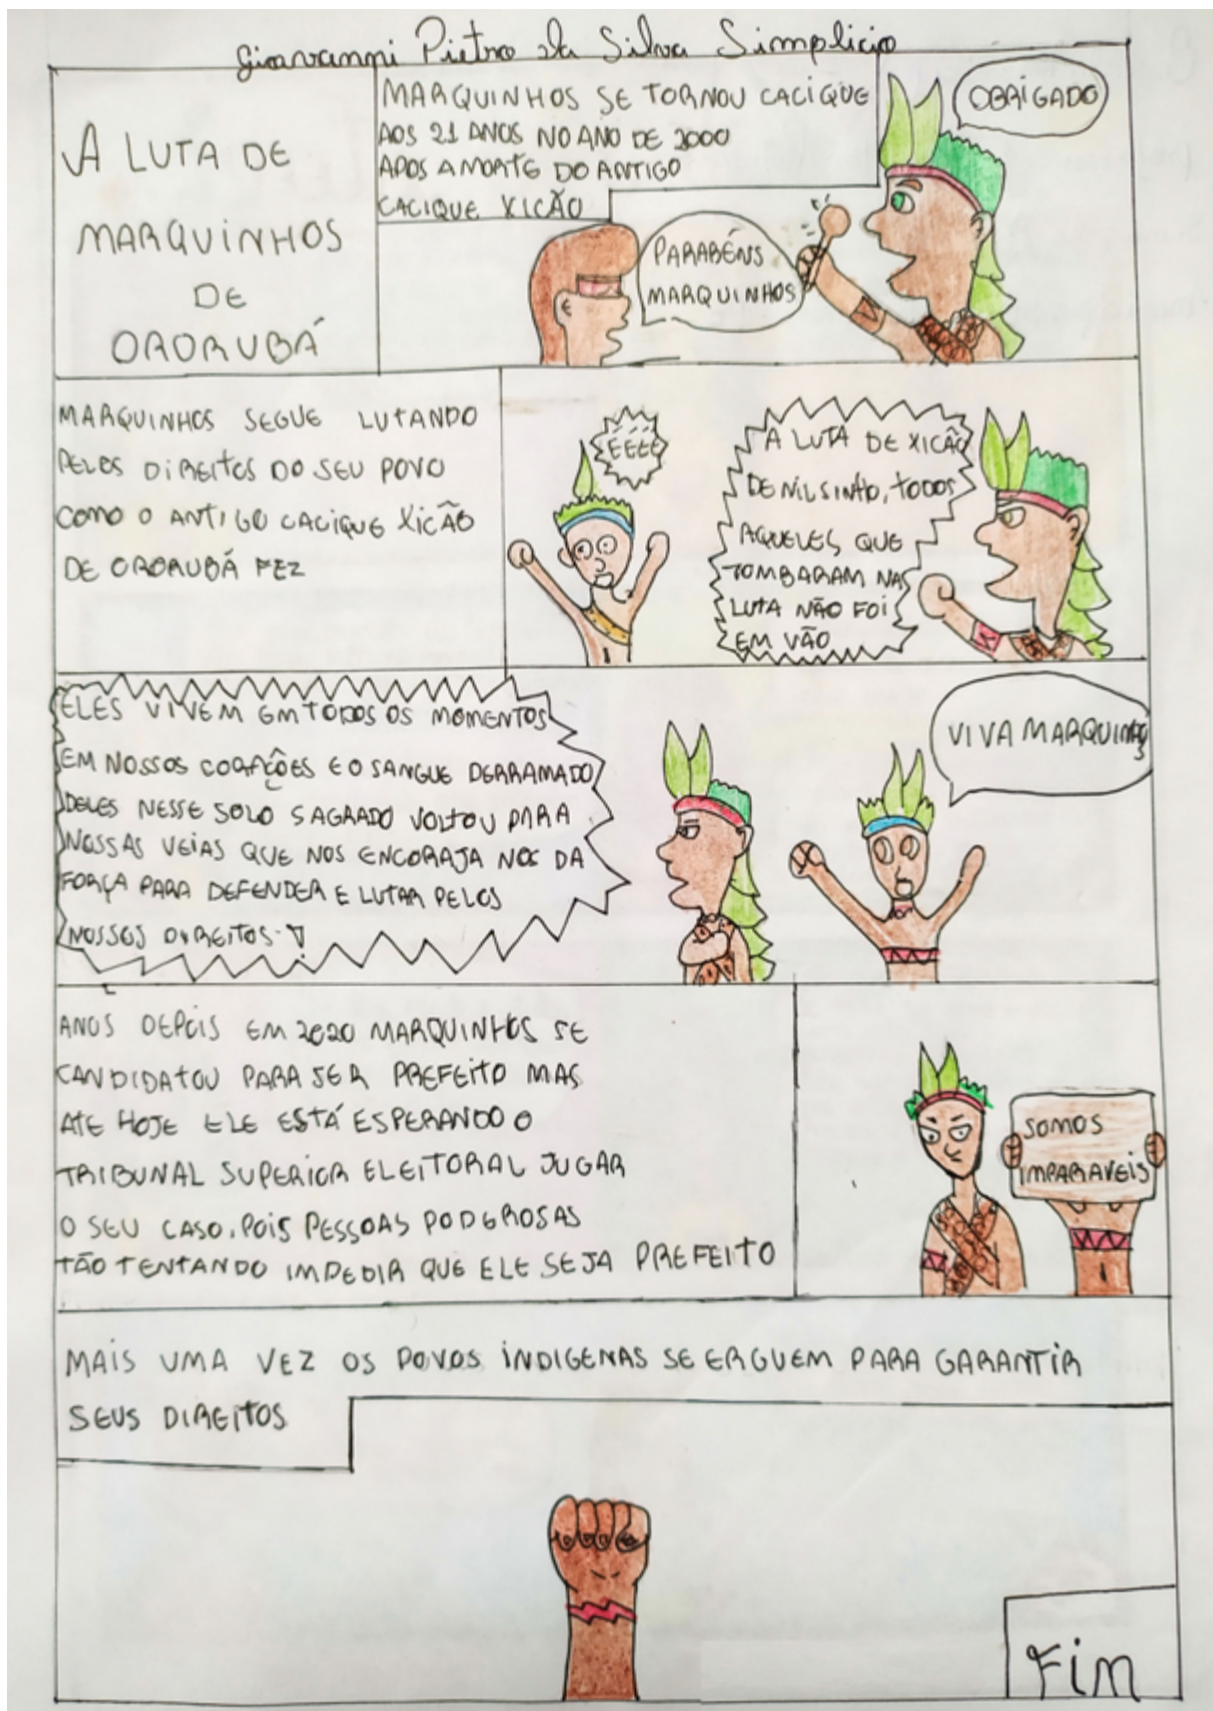 Giovanni Pietro da Silva Simplicio
A LUTA DE
MARQUINHOS
DE
ORORUBÁ
MARQUINHOS SE TORNOU CACIQUE
AOS 21 ANOS NO ANO DE 2000
APOS A MORTE DO ANTIGO
CACIQUE XICÃO
PARABÉNS
MARQUINHOS
OBRIGADO
MARQUINHOS SEGUE LUTANDO
PELOS DIREITOS DO SEU POVO
COMO O ANTIGO CACIQUE XICÃO
DE ORORUBÁ FEZ
EEEE
A LUTA DE XICÃO
DE NILSINHO, TODOS
AQUELES QUE
TOMBARAM NA
LUTA NÃO FOI
EM VÃO
ELES VIVEM EM TODOS OS MOMENTOS
EM NOSSOS CORAÇÕES E O SANGUE DERRAMADO
DELES NESSE SOLO SAGRADO VOLTOU PARA
NOSSAS VEIAS QUE NOS ENCORAJA NOS DA
FORÇA PARA DEFENDER E LUTAR PELOS
NOSSOS DIREITOS!
VIVA MARQUINHOS
ANOS DEPOIS EM 2020 MARQUINHOS SE
CANDIDATOU PARA SER PREFEITO MAS
ATE HOJE ELE ESTÁ ESPERANDO O
TRIBUNAL SUPERIOR ELEITORAL JUGAR
O SEU CASO, POIS PESSOAS PODEROSAS
TÃO TENTANDO IMPEDIR QUE ELE SEJA PREFEITO
SOMOS
IMPARAVEIS
MAIS UMA VEZ OS POVOS INDIGENAS SE ERGUEM PARA GARANTIR
SEUS DIREITOS
Fim